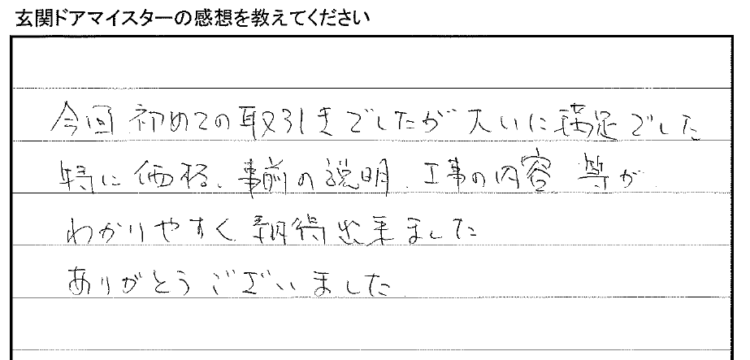 玄関ドアマイスターの感想を教えてください
今回 初めての取引きでしたが 大いに満足でした
特に価格、事前の説明、工事の内容 等が
わかりやすく 期待出来ました
ありがとうございました